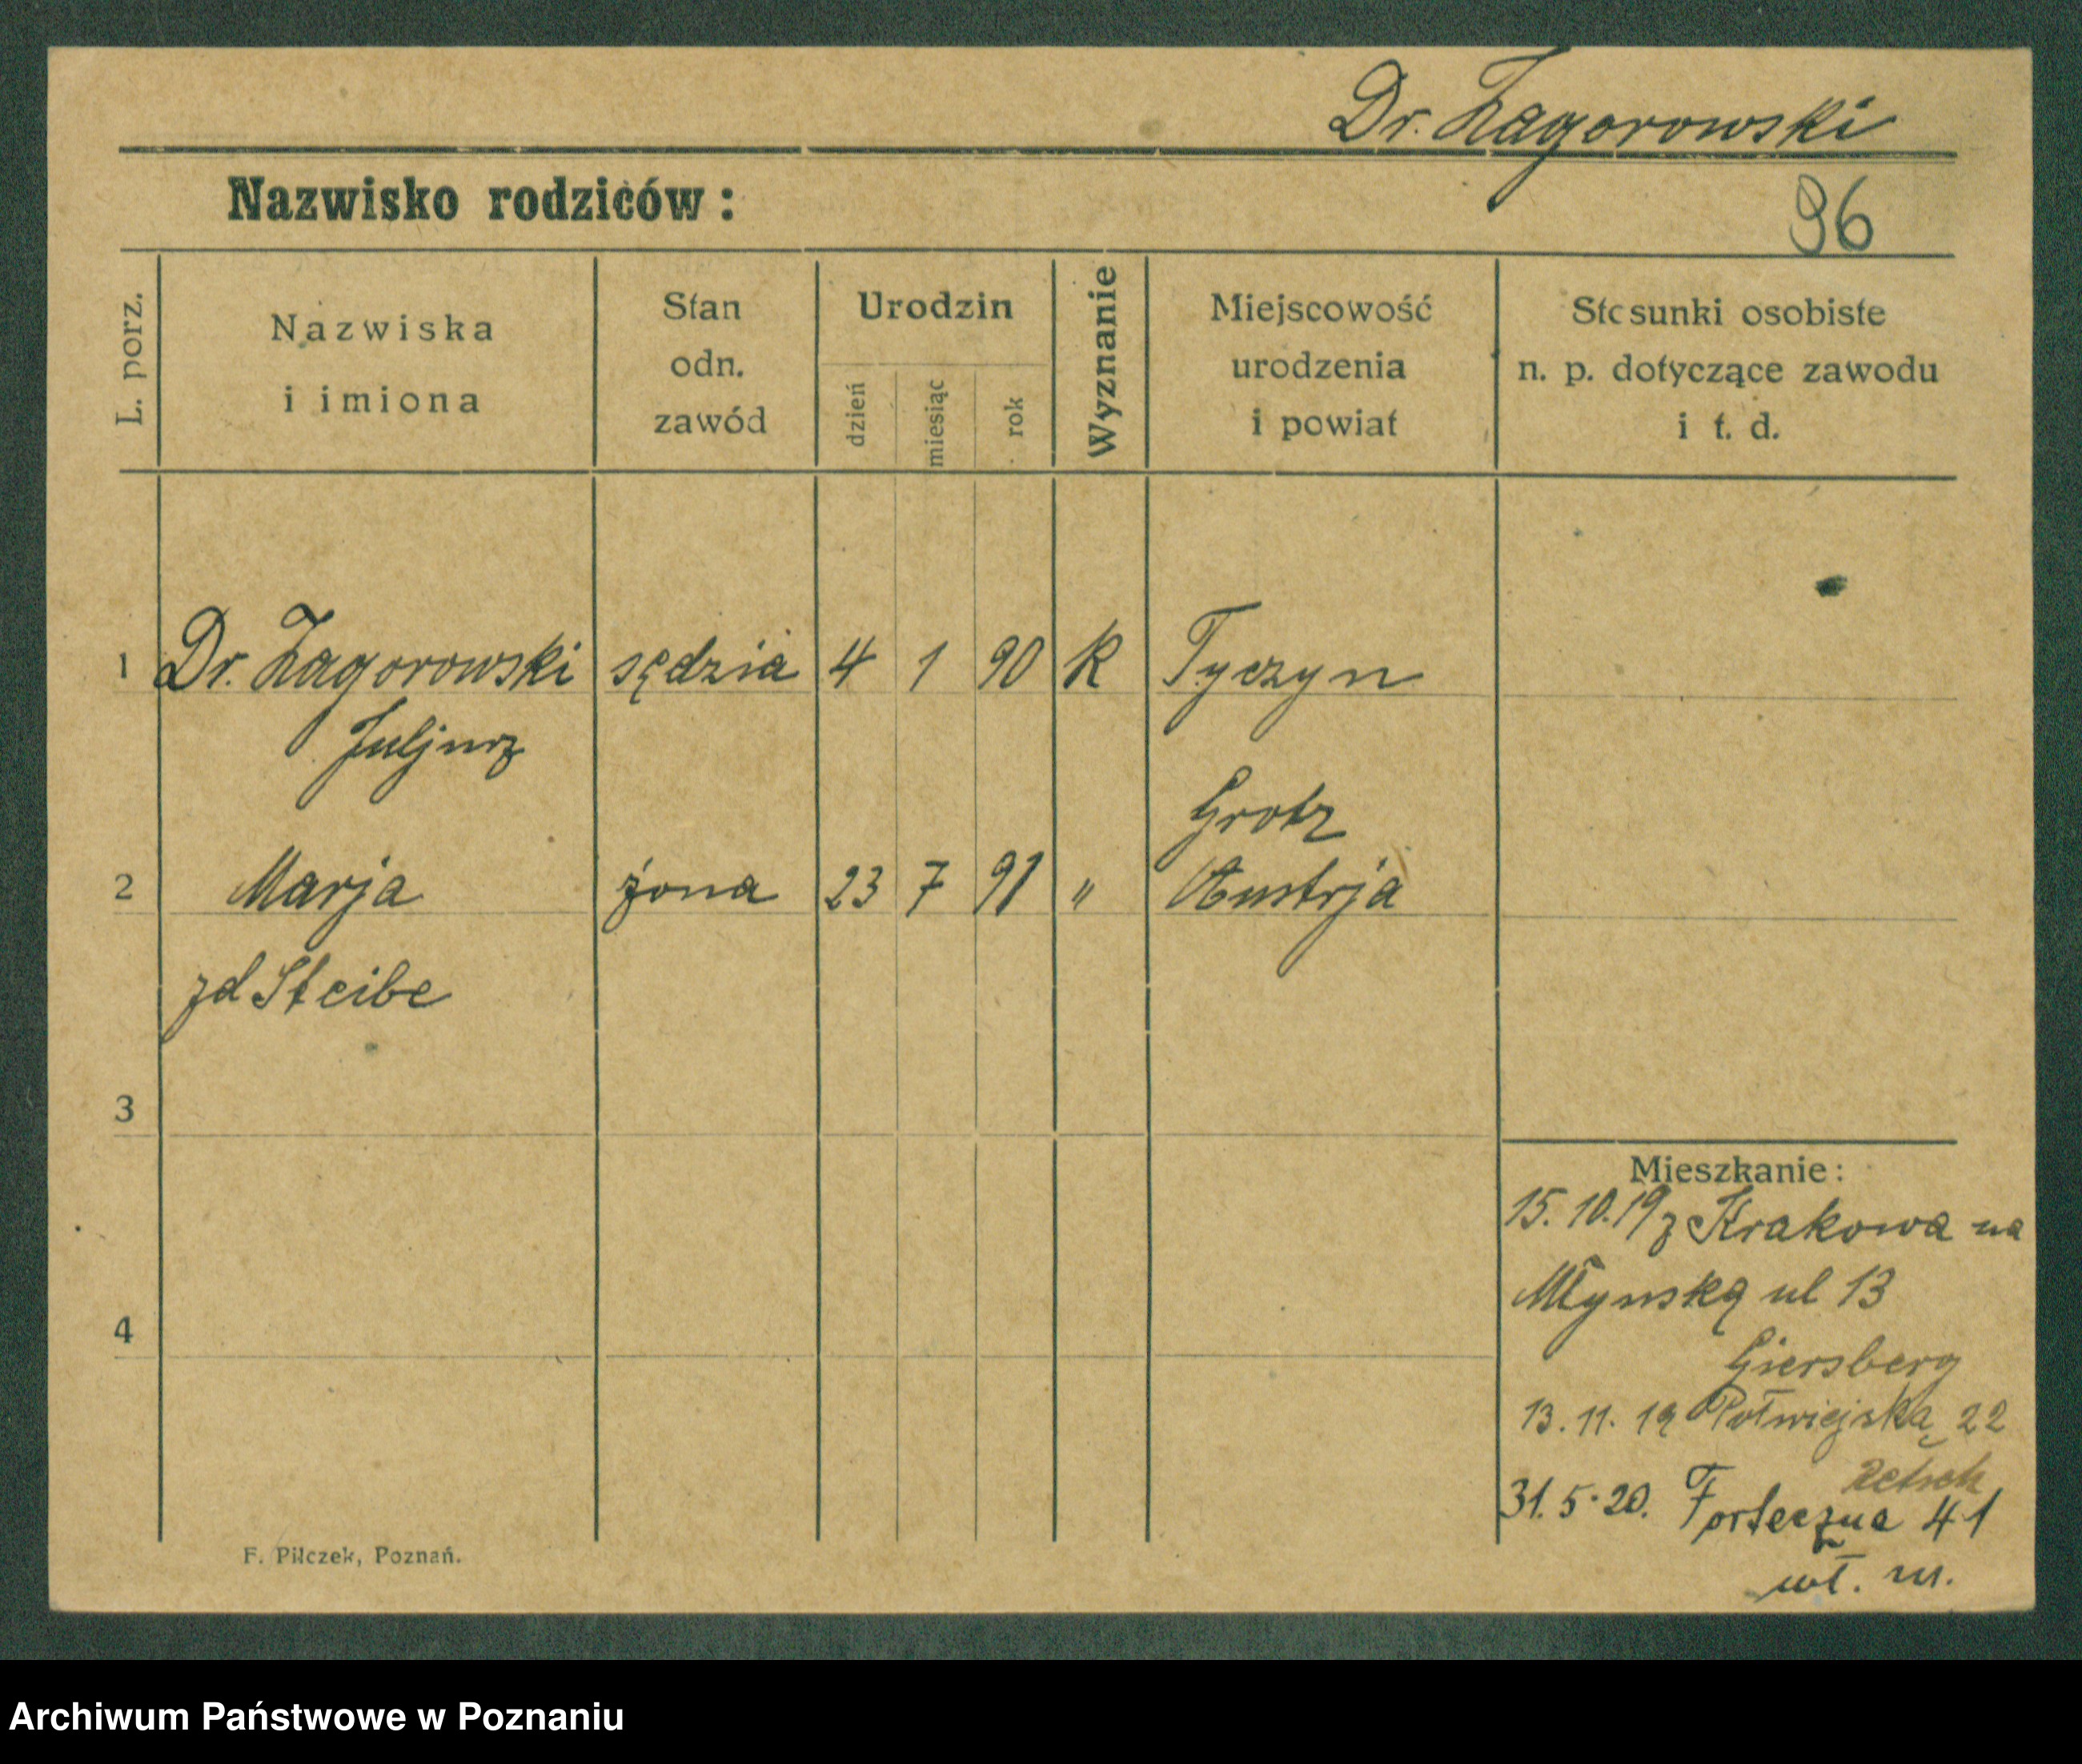 Dr. Zagorowski
Nazwisko rodziców:
96
L. porz.
Nazwiska
i imiona
Stan
odn.
zawód
Urodzin
dzień
miesiąc
rok
Wyznanie
Miejscowość
urodzenia
i powiat
Stosunki osobiste
n. p. dotyczące zawodu
i t. d.
1 Dr. Zagorowski sędzia 4 1 90 K Tyczyn
Juljusz
Grotz
2 Marja żona 23 7 91 " Austrja
zd Steibe
3
4
Mieszkanie:
15.10.19 z Krakowa na
Młynską ul 13
Giersberg
13.11.19 Półwiejska 22
31.5.20. Forteczna 41
wł. m.
F. Pilczek, Poznań.
Archiwum Państwowe w Poznaniu